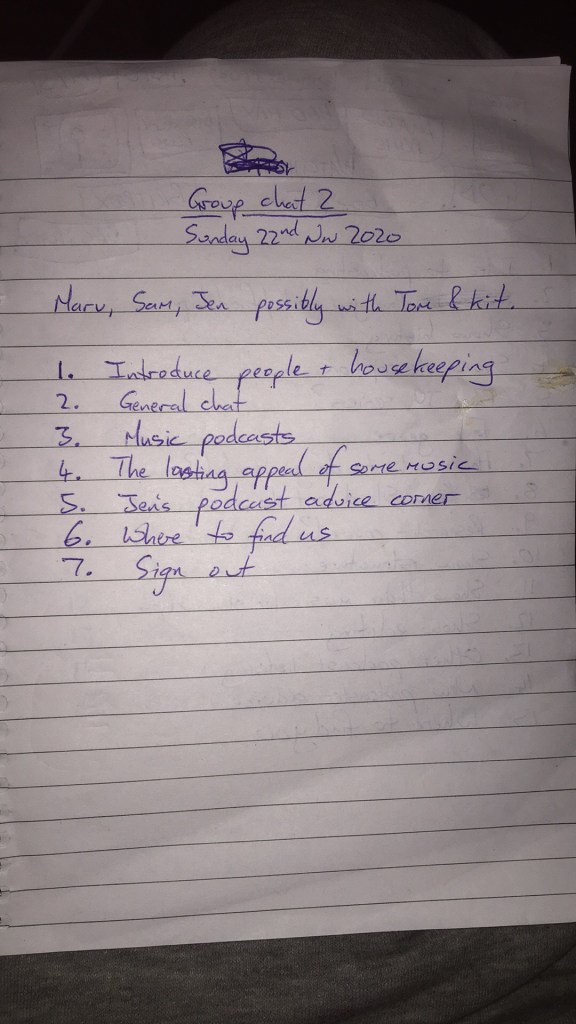 Group chat 2
Sunday 22nd Nov 2020
Marv, Sam, Jen possibly with Tom & kit.
1. Introduce people + housekeeping
2. General chat
3. Music podcasts
4. The lasting appeal of some music
5. Jen's podcast advice corner
6. Where to find us
7. Sign out